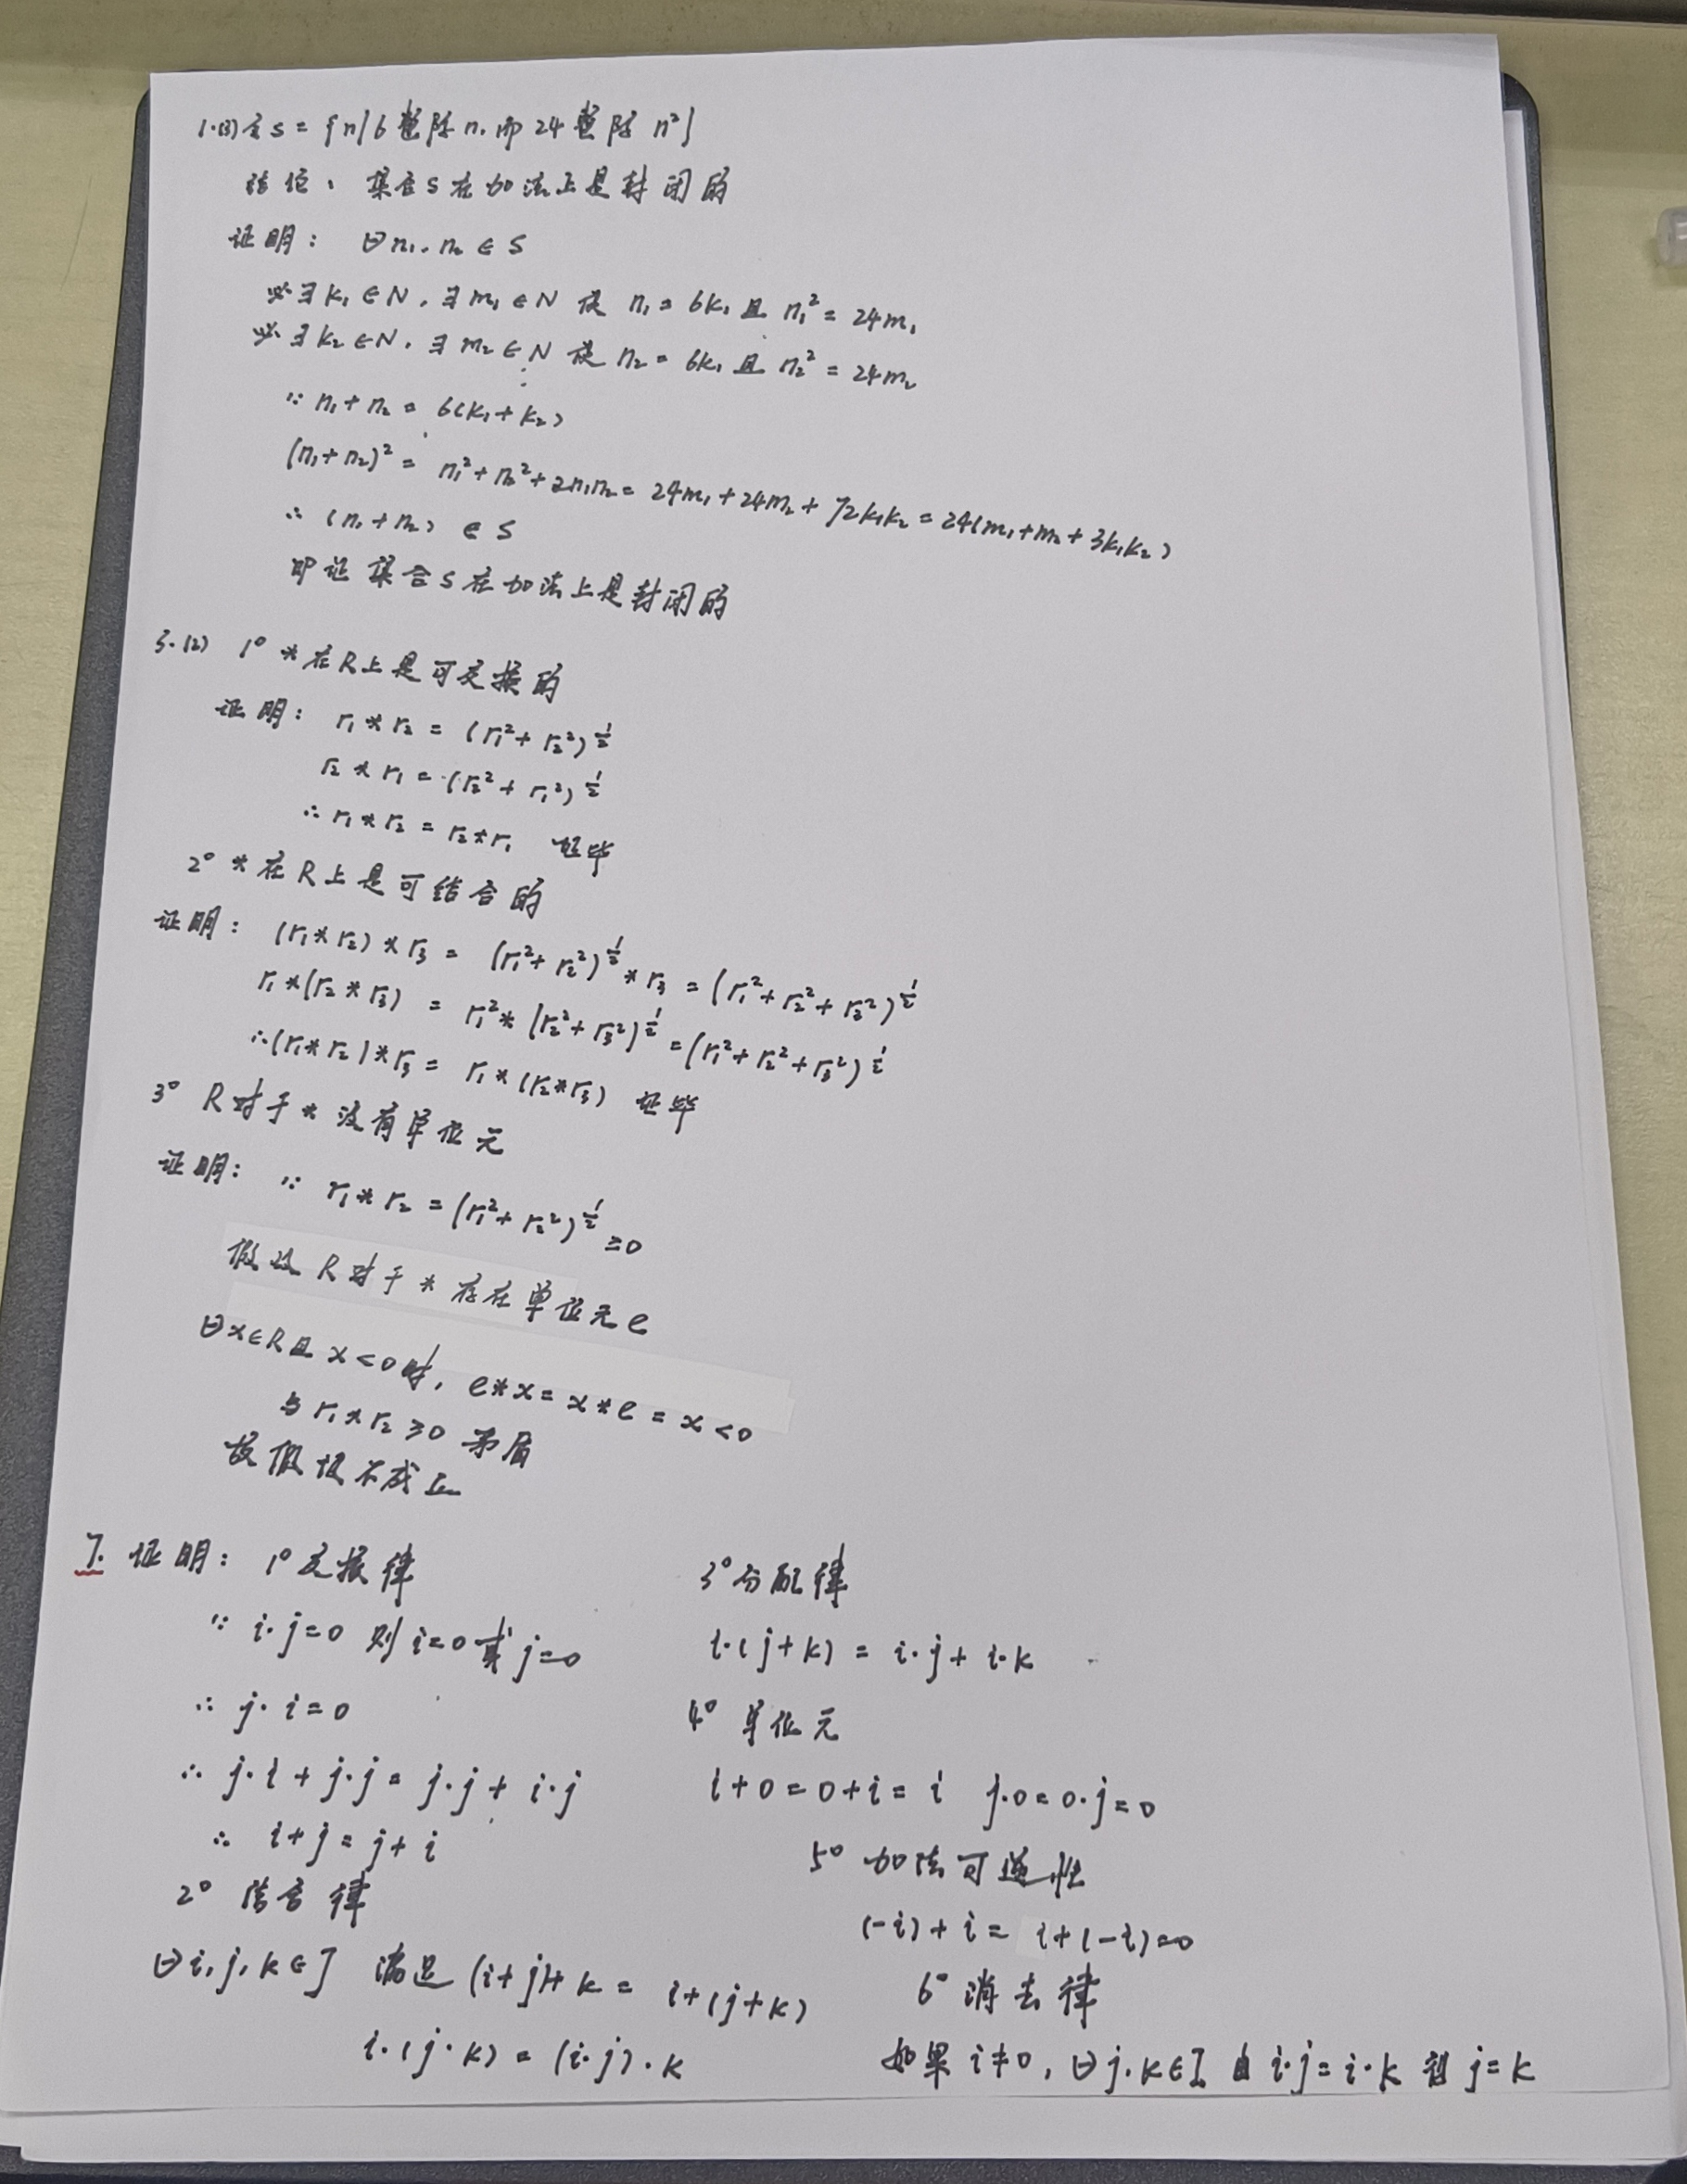 1.(3) 令S = {n|6整除n, 而24整除n²}
结论: 集合S在加法上是封闭的
证明: ∀n₁, n₂ ∈ S
必∃k₁∈N, ∃m₁∈N 使 n₁ = 6k₁ 且 n₁² = 24m₁
必∃k₂∈N, ∃m₂∈N 使 n₂ = 6k₁ 且 n₂² = 24m₂
∵ n₁+n₂ = 6(k₁+k₂)
(n₁+n₂)² = n₁²+n₂²+2n₁n₂ = 24m₁+24m₂+72k₁k₂ = 24(m₁+m₂+3k₁k₂)
∴ (n₁+n₂) ∈ S
即证 集合S在加法上是封闭的
3.(2) 1° *在R上是可交换的
证明: r₁*r₂ = (r₁²+r₂²)^½
r₂*r₁ = (r₂²+r₁²)^½
∴ r₁*r₂ = r₂*r₁ 证毕
2° *在R上是可结合的
证明: (r₁*r₂)*r₃ = (r₁²+r₂²)^½*r₃ = (r₁²+r₂²+r₃²)^½
r₁*(r₂*r₃) = r₁²*(r₂²+r₃²)^½ = (r₁²+r₂²+r₃²)^½
∴(r₁*r₂)*r₃ = r₁*(r₂*r₃) 证毕
3° R对于*没有单位元
证明: ∵ r₁*r₂ = (r₁²+r₂²)^½ ≥0
假设R对于*存在单位元e
∀x∈R且x<0时, e*x = x*e = x<0
与r₁*r₂≥0 矛盾
故假设不成立
7. 证明: 1°交换律
∵ i·j=0 则i=0或j=0
∴ j·i=0
∴ j·i + j·j = j·j + i·j
∴ i+j = j+i
2° 结合律
∀i,j,k∈J 满足 (i+j)+k = i+(j+k)
i·(j·k) = (i·j)·k
3°分配律
i·(j+k) = i·j + i·k
4° 单位元
i+0=0+i=i j·0=0·j=0
5° 加法可逆性
(-i)+i = i+(-i)=0
6°消去律
如果i≠0, ∀j,k∈I 由i·j=i·k 得j=k